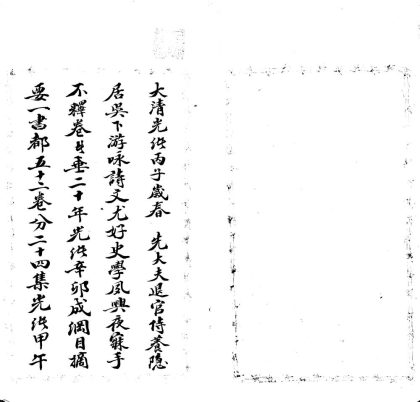 大清光緒丙子歲春 先大夫退官侍養隱
居吳下游咏詩文尤好史學夙興夜寐手
不釋卷者垂二十年光緒辛卯成綱目摘
要一書都五十二卷分二十四集光緒甲午